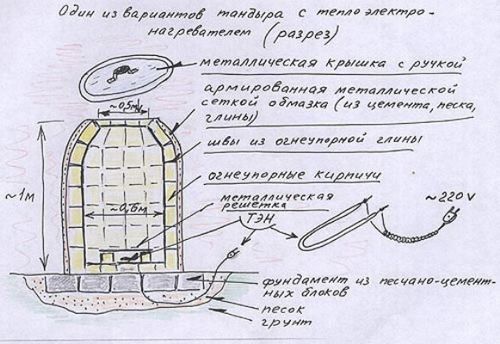 Один из вариантов тандыра с теплоэлектро-
нагревателем (разрез)
металлическая крышка с ручкой
~0,5м
армированная металлической
сеткой обмазка (из цемента, песка,
глины)
швы из огнеупорной глины
огнеупорные кирпичи
~1м
~0,6м
металлическая
решетка
ТЭН
~220V
фундамент из песчано-цемент-
ных блоков
песок
грунт